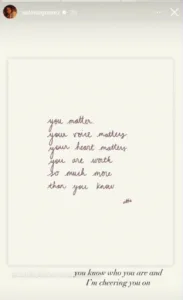 you matter
your voice matters
your heart matters
you are worth
so much more
than you know
you know who you are and
I'm cheering you on